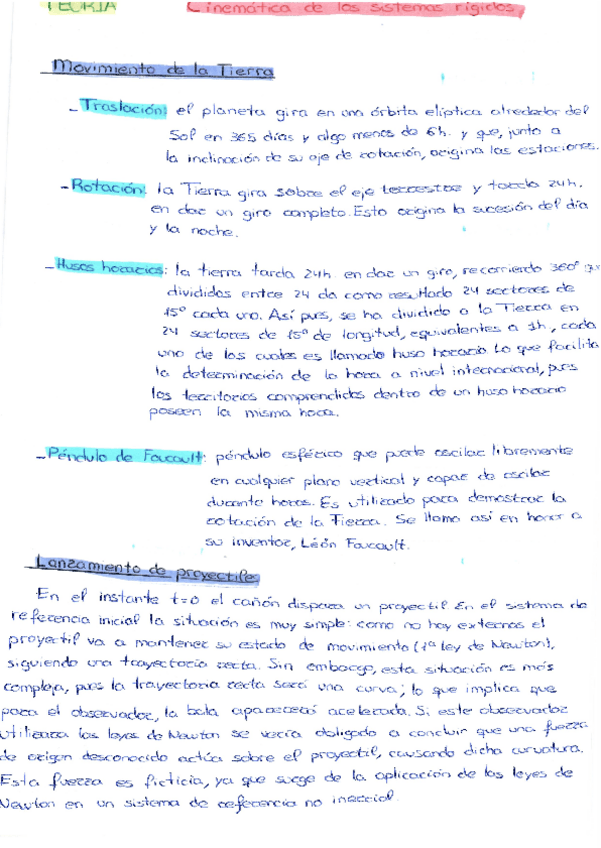 TEORIA Cinemática de los sistemas rígidos
Movimiento de la Tierra
- Traslación: el planeta gira en una órbita elíptica alrededor del
Sol en 365 días y algo menos de 6h. y que, junto a
la inclinación de su eje de rotación, origina las estaciones.
- Rotación: la Tierra gira sobre el eje terrestre y tarda 24h.
en dar un giro completo. Esto origina la sucesión del día
y la noche.
- Husos horarios: la tierra tarda 24h en dar un giro, recorriendo 360º
divididos entre 24 da como resultado 24 sectores de
15º cada uno. Así pues, se ha dividido a la Tierra en
24 sectores de 15º de longitud, equivalentes a 1h, cada
uno de los cuales es llamado huso horario lo que facilita
la determinación de la hora a nivel internacional, pues
los territorios comprendidos dentro de un huso horario
poseen la misma hora.
- Péndulo de Foucault: péndulo esférico que puede oscilar libremente
en cualquier plano vertical y capaz de oscilar
durante horas. Es utilizado para demostrar la
rotación de la Tierra. Se llama así en honor a
su inventor, Léon Foucault.
Lanzamiento de proyectiles
En el instante t=0 el cañón dispara un proyectil. En el sistema de
referencia inicial la situación es muy simple: como no hay externas el
proyectil va a mantener su estado de movimiento (1ª ley de Newton),
siguiendo una trayectoria recta. Sin embargo, esta situación es más
compleja, pues la trayectoria recta será una curva; lo que implica que
para el observador, la bala aparecerá acelerada. Si este observador
utilizara las leyes de Newton se vería obligado a concluir que una fuerza
de origen desconocido actúa sobre el proyectil, causando dicha curvatura.
Esta fuerza es ficticia, ya que surge de la aplicación de las leyes de
Newton en un sistema de referencia no inercial.